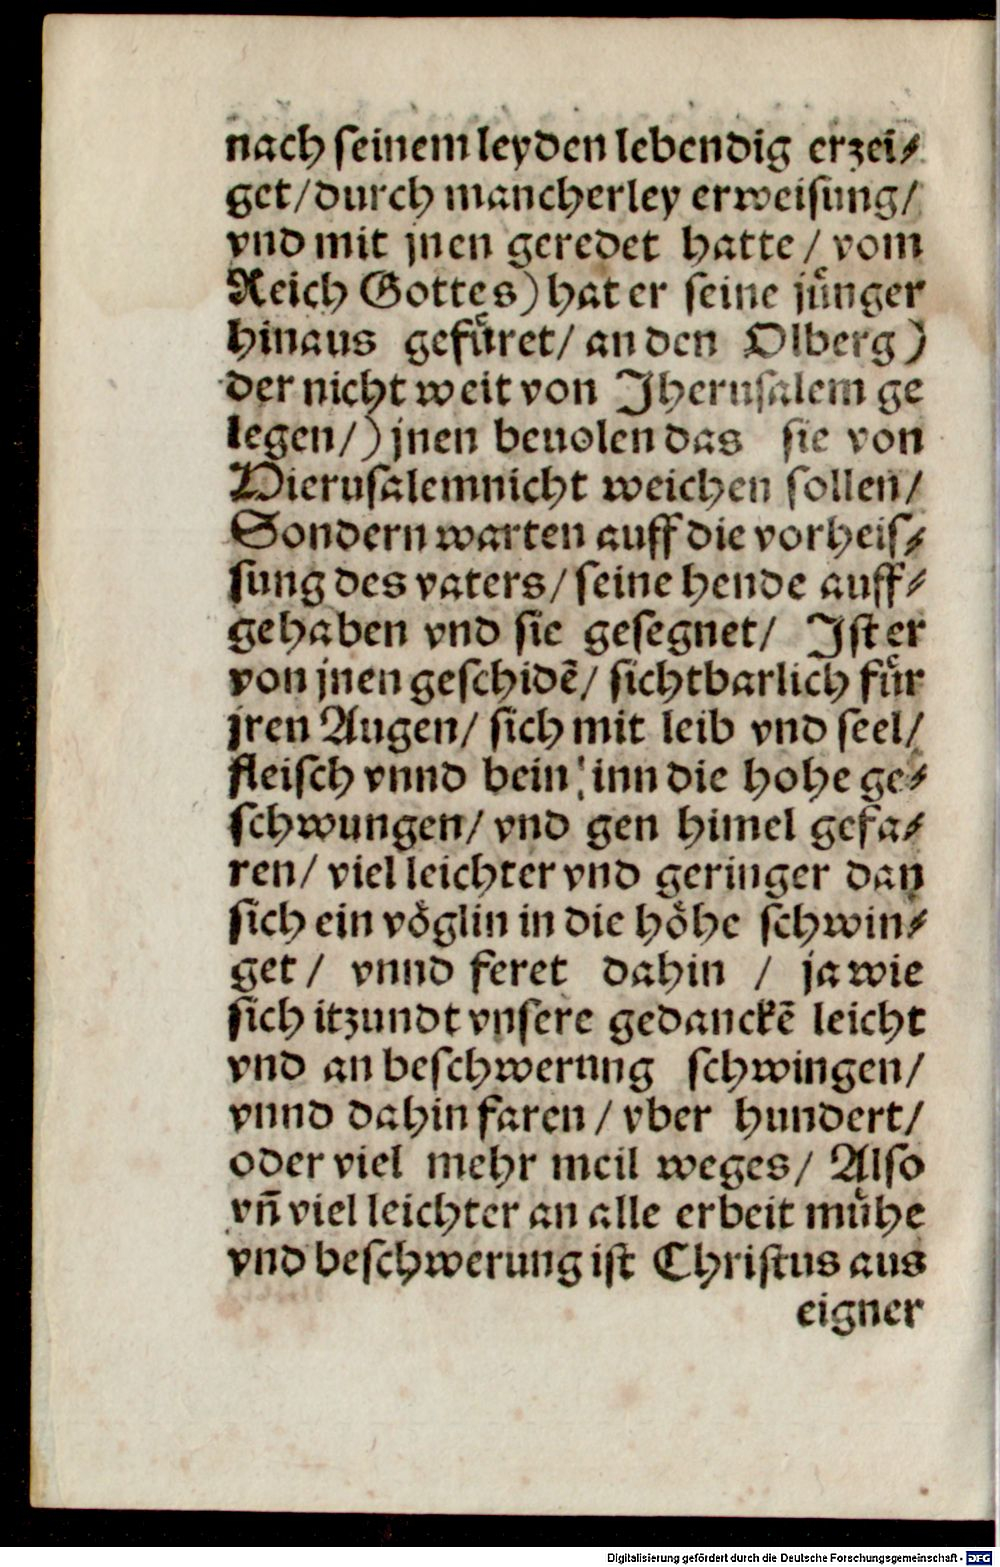 nach ſeinem leyden lebendig erzei⸗
get/durch mancherley erweiſung/
vnd mit jnen geredet hatte / vom
Reich Gottes) hat er ſeine jůnger
hinaus gefůret/ an den Olberg)
der nicht weit von Jheruſalem ge
legen/) jnen beuolen das ſie von
Hieruſalemnicht weichen ſollen/
Sondern warten auff die vorheiſ⸗
ſung des vaters/ ſeine hende auff⸗
gehaben vnd ſie geſegnet/ Jſt er
von jnen geſchidẽ/ ſichtbarlich fůr
jren Augen/ ſich mit leib vnd ſeel/
fleiſch vnnd bein/ inn die hohe ge⸗
ſchwungen/ vnd gen himel gefa⸗
ren/ viel leichter vnd geringer dan
ſich ein võglin in die hőhe ſchwin⸗
get / vnnd feret dahin / ja wie
ſich itzundt vnſere gedanckẽ leicht
vnd an beſchwerung ſchwingen/
vnnd dahin faren / vber hundert/
oder viel mehr meil weges/ Alſo
vñ viel leichter an alle erbeit můhe
vnd beſchwerung iſt Chriſtus aus
eigner
Digitalisierung gefördert durch die Deutsche Forschungsgemeinschaft - DFG